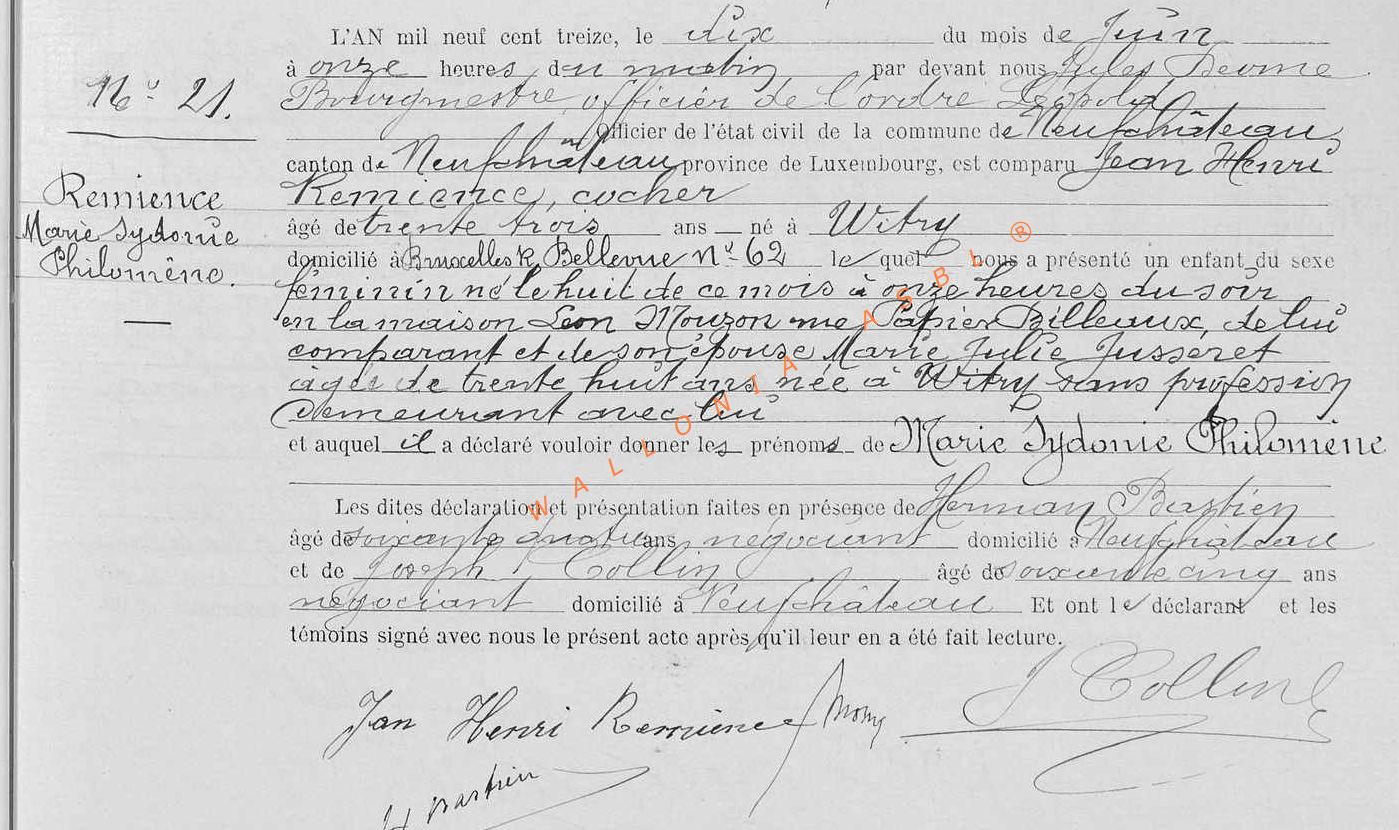 L'AN mil neuf cent treize, le dix du mois de Juin
à onze heures du matin par devant nous Jules
Bourgmestre, officier de l'ordre Léopold
Officier de l'état civil de la commune de Neufchâteau,
canton de Neufchâteau province de Luxembourg, est comparu Jean Henri
Remience, cocher
âgé de trente trois ans né à Witry
domicilié à Bruxelles R. Bellevue No 62 le quel nous a présenté un enfant du sexe
féminin né le huit de ce mois à onze heures du soir
en la maison Leon Mouzon rue Papier Billeaux, de lui
comparant et de son épouse Marie Julie Jusseret
âgée de trente huit ans née à Witry sans profession
demeurant avec lui
et auquel il a déclaré vouloir donner les prénoms de Marie Sydonie Philomène
Les dites déclaration et présentation faites en présence de Herman Bastien
âgé de soixante quatre ans négociant domicilié à Neufchâteau
et de Joseph Collin âgé de soixante cinq ans
négociant domicilié à Neufchâteau Et ont le déclarant et les
témoins signé avec nous le présent acte après qu'il leur en a été fait lecture.
No 21.
Remience
Marie Sydonie
Philomène.
Jean Henri Remience
J Collin
H Bastien
WALLONIA ASBL ®